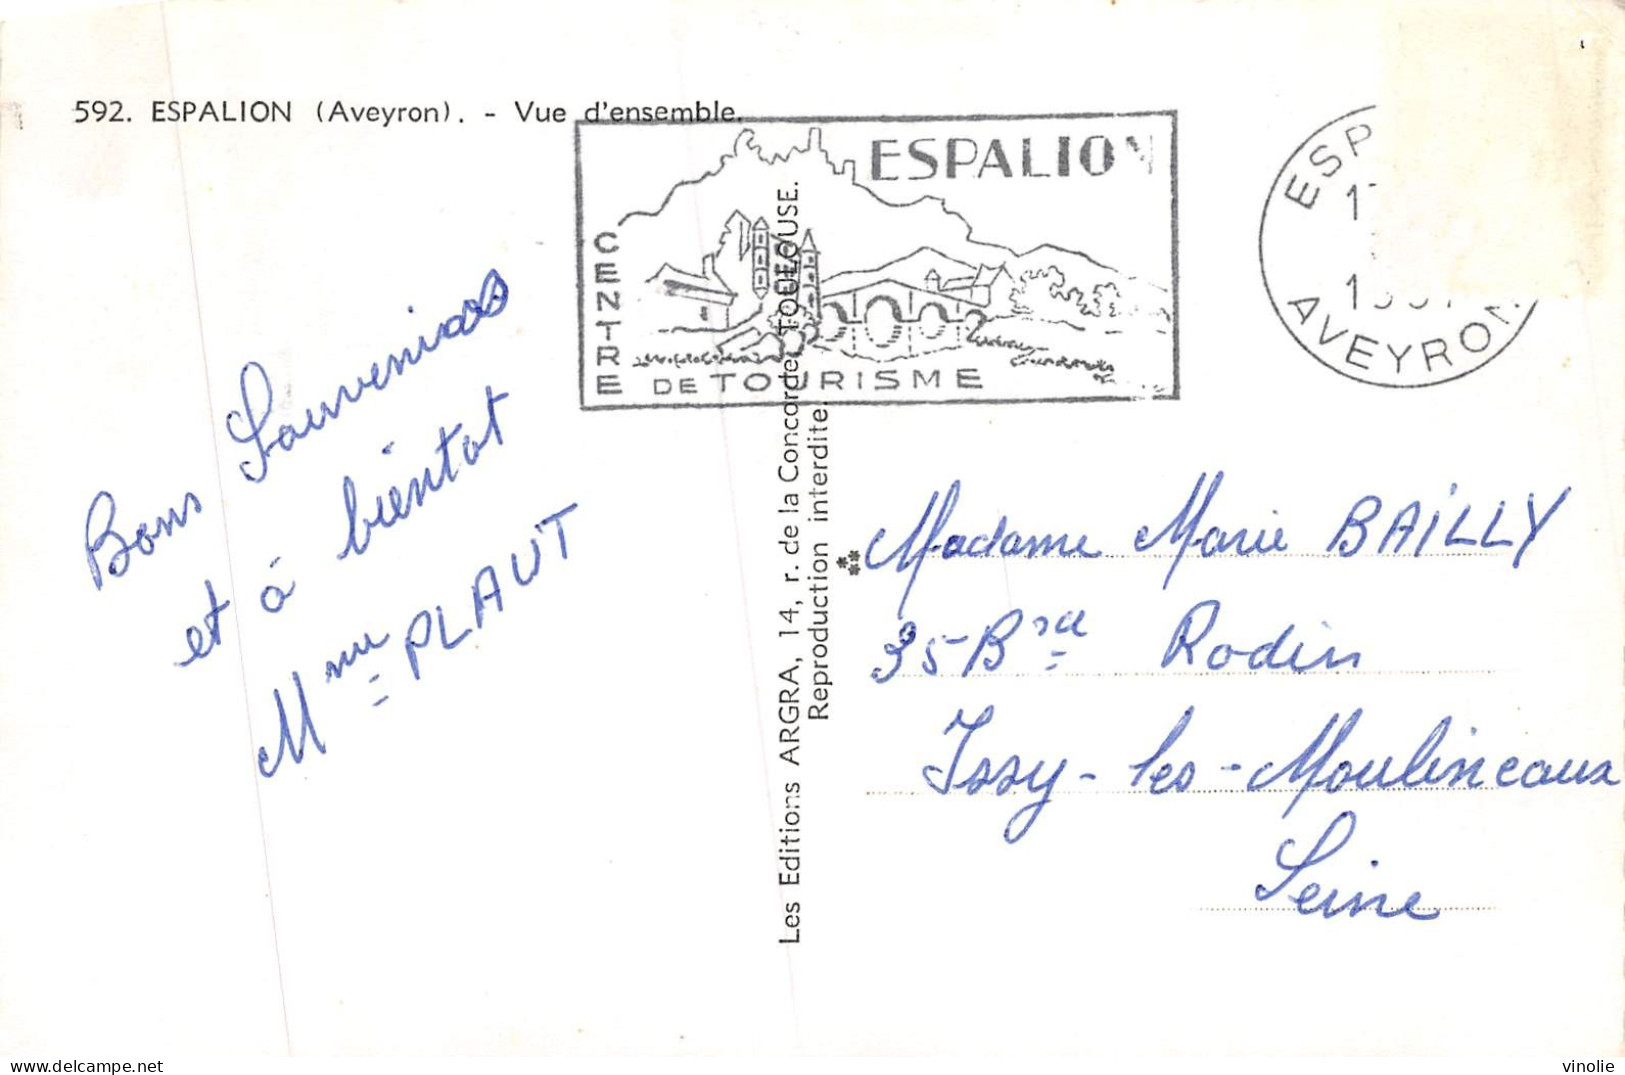 592. ESPALION (Aveyron). - Vue d'ensemble.
ESPALION
CENTRE
DE TOURISME
ESP
AVEYRON
Bons Souvenirs
et à bientot
Mme PLAUT
Les Editions ARGRA, 14, r. de la Concorde, TOULOUSE.
Reproduction interdite.
Madame Marie BAILLY
35 Rodin
Issy-les-Moulineaux
Seine
delcampe.net
vinolie